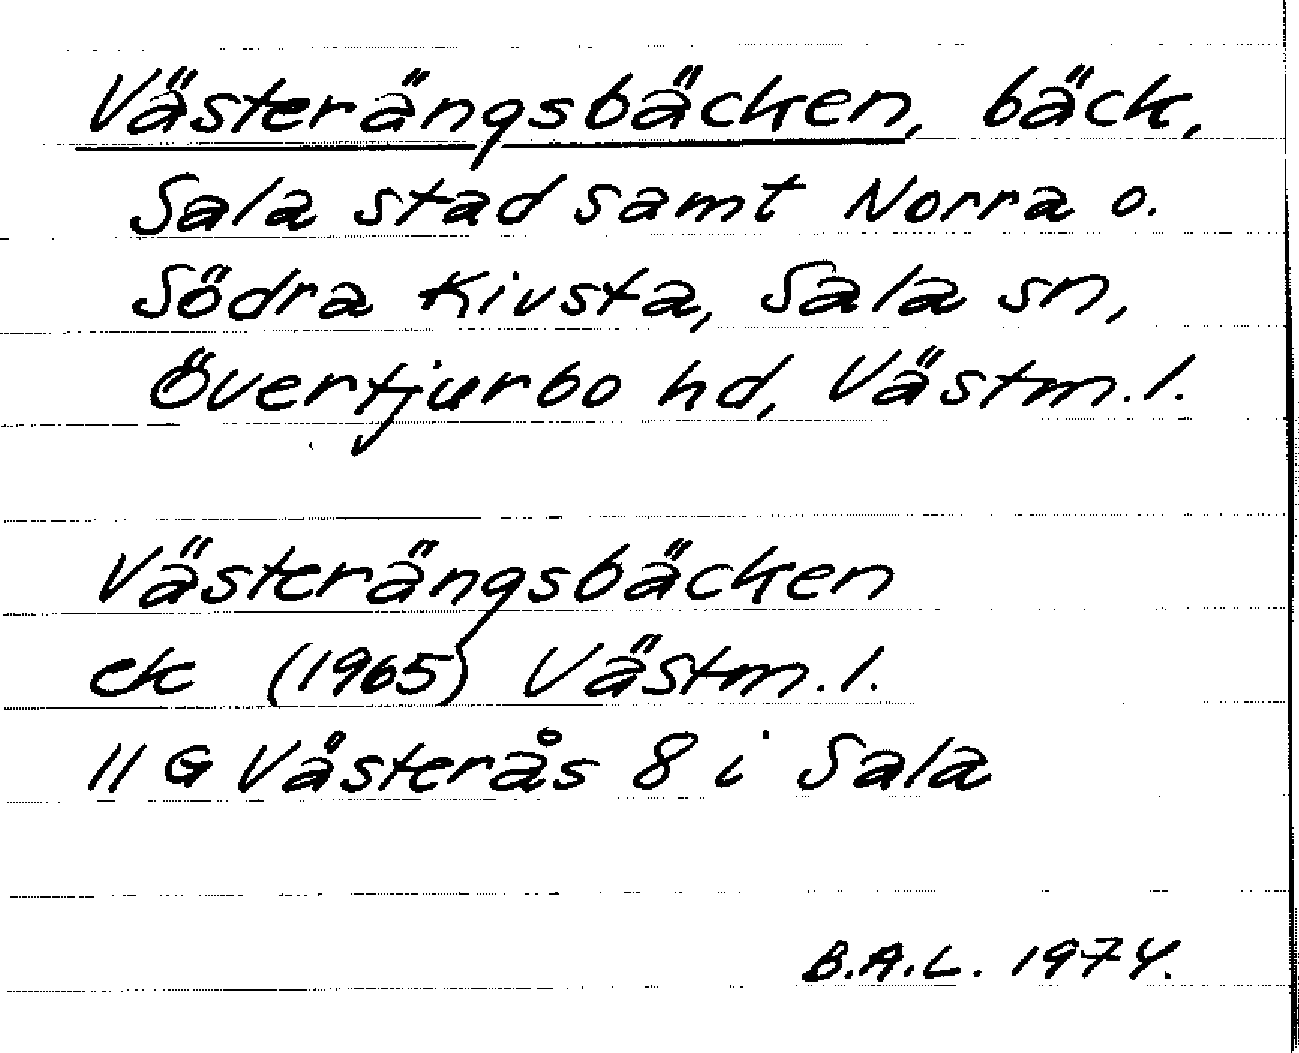 Västerängsbäcken, bäck,
Sala stad samt Norra o.
Södra Kivsta, Sala sn,
Övertjurbo hd, Västm.l.
Västerängsbäcken
ek (1965) Västm.l.
11 G Västerås 8 i Sala
B.A.L. 1974.